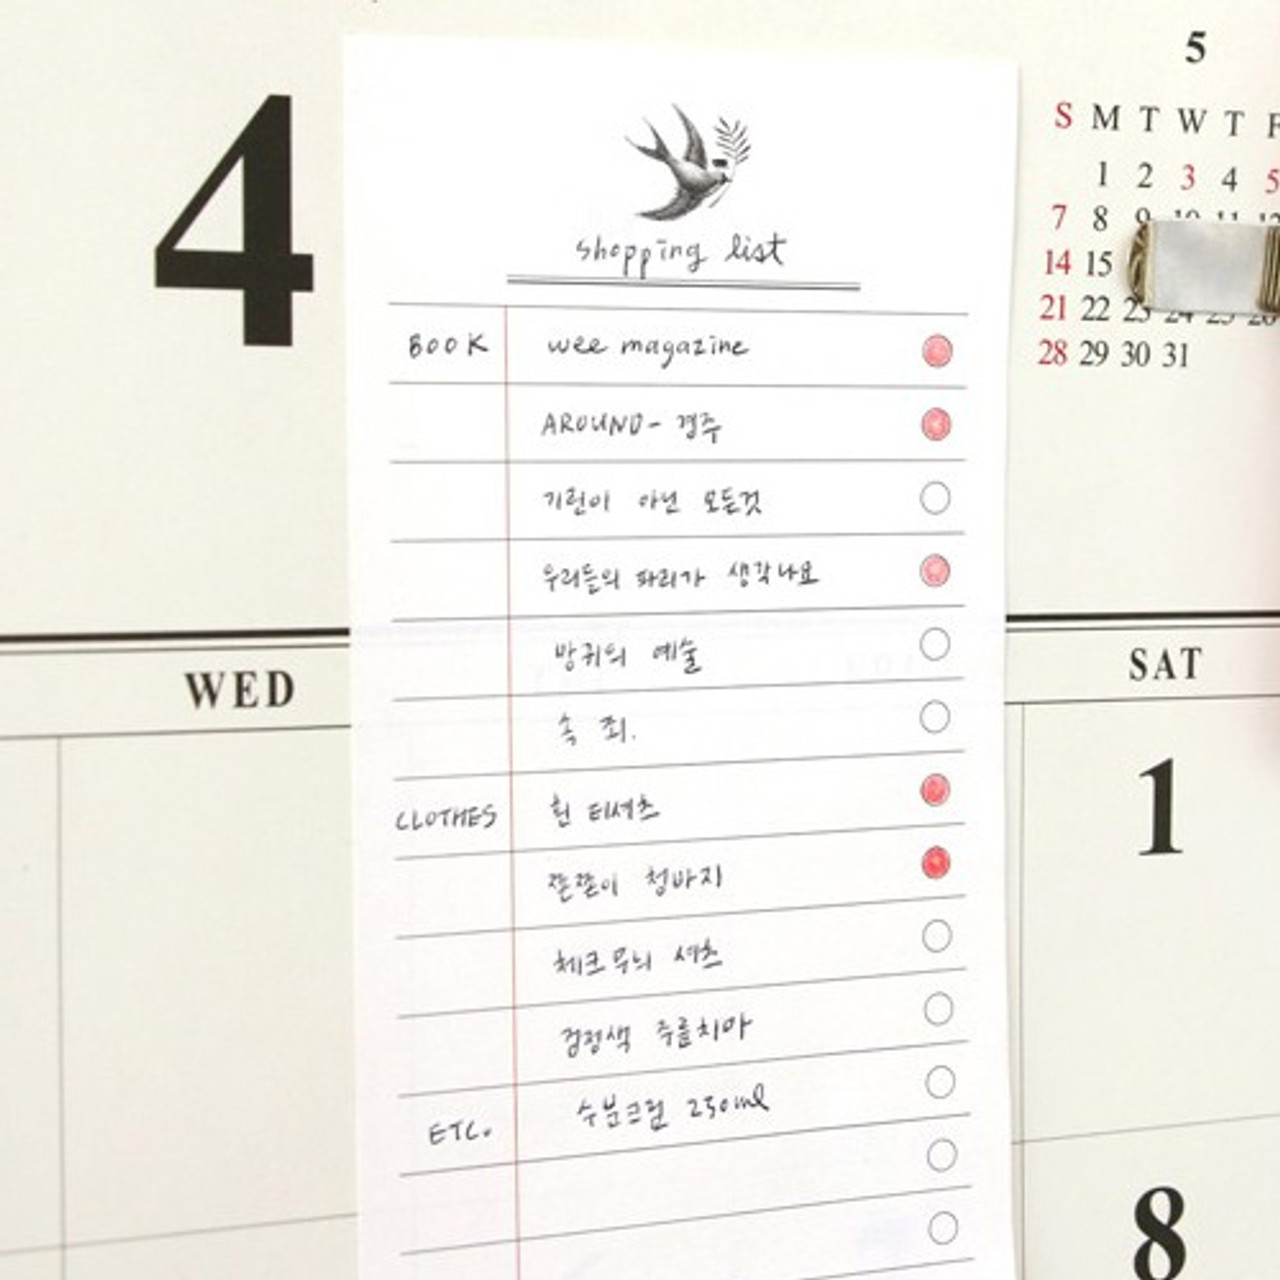 4
5
S M T W T F
1 2 3 4 5
7 8 9 10 11 12
14 15
21 22 23 24 25 26
28 29 30 31
shopping list
BOOK wee magazine
AROUND - 경주
기린이 아닌 모든것
우리들의 파리가 생각나요
방귀의 예술
속죄.
CLOTHES 흰 티셔츠
쫄쫄이 청바지
체크무늬 셔츠
검정색 주름치마
ETC. 수분크림 250ml
WED
SAT
1
8